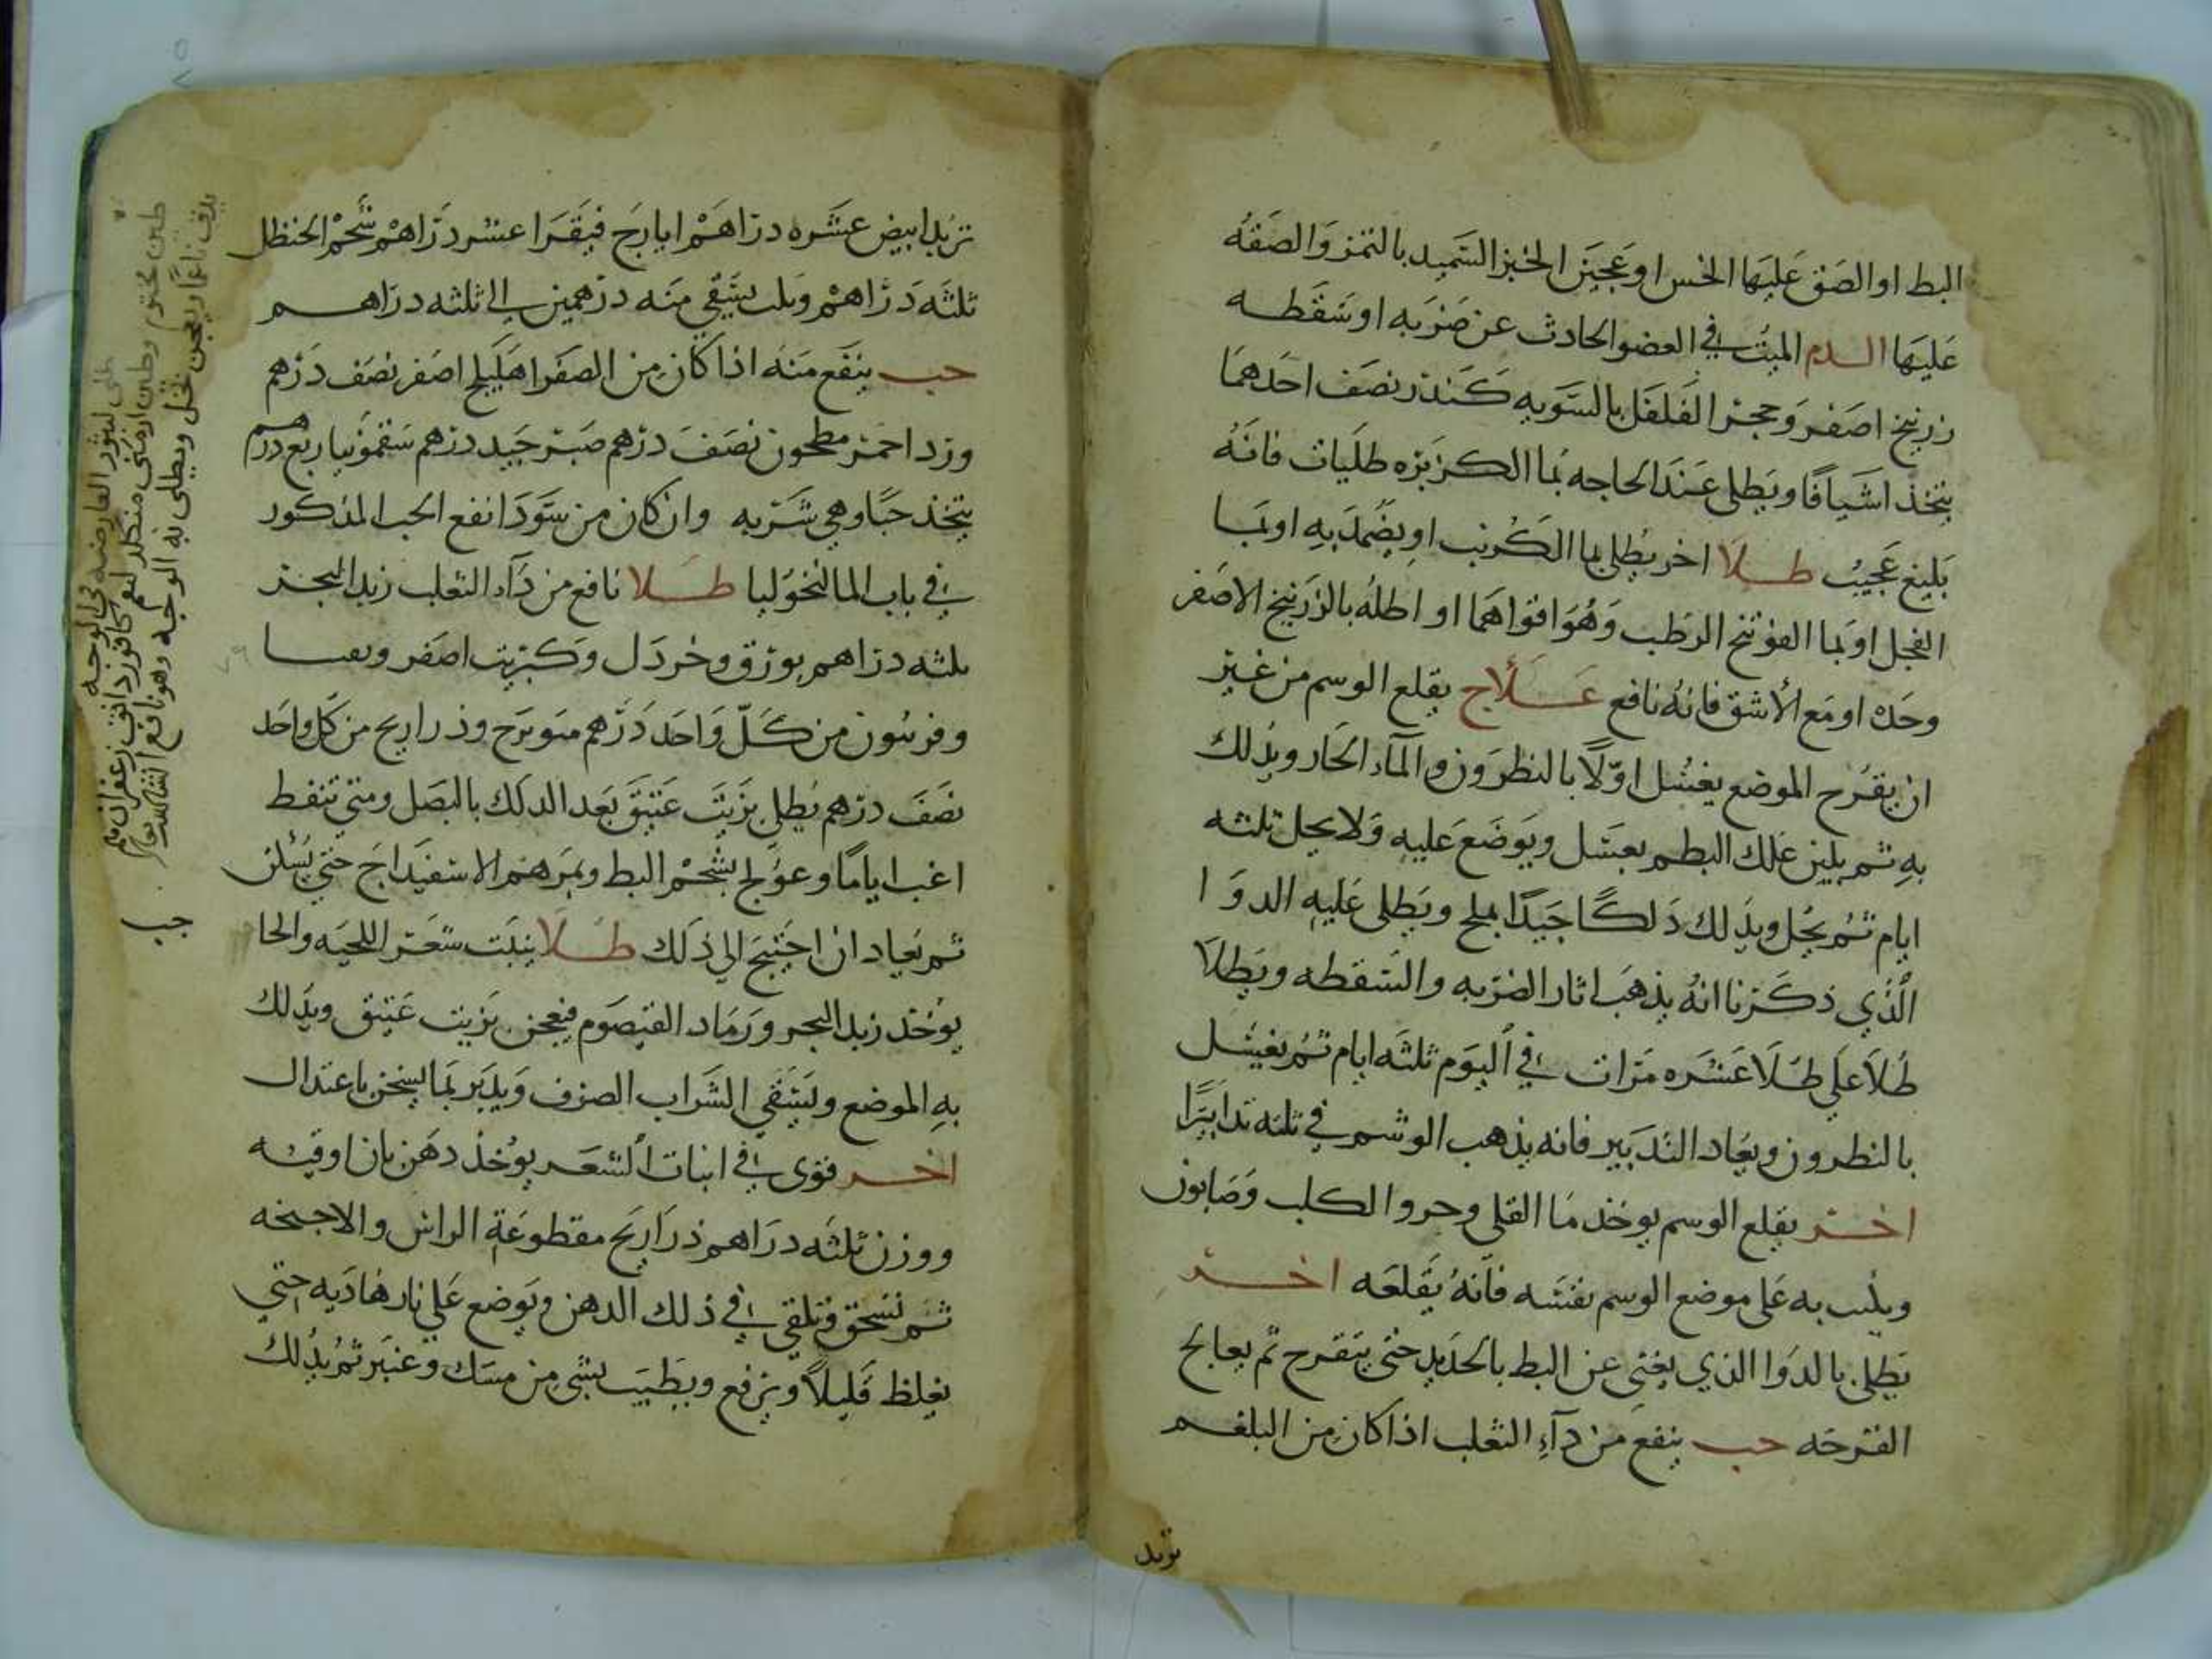 البط او الصق عليها الخس او عجين الخبز السميد بالتمر والصقه
عليها الدم الميت في العضو الحادث عن ضربه او سقطه
زرنيخ اصفر وحجر الفلفل بالسويه كندر نصف احدهما
يتخذ اشيافا ويطلى عند الحاجه بما الكزبره طليات فانه
بليغ عجيب طلا اخر يطلى بما الكرنب او يضمد به او بما
الفجل او بما الفوتنج الرطب وهو اقواهما او اطله بالزرنيخ الاصفر
وحده او مع الأشق فانه نافع علاج يقلع الوسم من غير
ان يقرح الموضع يغسل اولا بالنطرون والمآء الحار ويدلك
به ثم يلين علك البطم بعسل ويوضع عليه ولا يحل ثلثه
ايام ثم يحل ويدلك دلكا جيدا بملح ويطلى عليه الدوا
الذي ذكرنا انه يذهب اثار الضربه والسقطه ويطلا
طلا علي طلا عشره مرات في اليوم ثلثه ايام ثم يغسل
بالنطرون ويعاد التدبير فانه يذهب الوشم في ثلثه تدابيرا
اخر يقلع الوسم يوخذ ما القلي وحروا الكلب وصابون
ويلبب به على موضع الوسم نفسه فانه يقلعه اخر
يطلى بالدوا الذي يغني عن البط بالحديد حتى يتقرح ثم يعالج
القرحه حب ينفع من دآء الثعلب اذا كان من البلغم
تربد
تربد ابيض عشره دراهم ايارج فيقرا عشر دراهم شحم الحنظل
ثلثه دراهم ويلت يسقي منه درهمين الى ثلثه دراهم
حب ينفع منه اذا كان من الصفرا هليلج اصفر نصف درهم
ورد احمر مطحون نصف درهم صبر جيد درهم سقمونيا ربع درهم
يتخذ حبا وهي شربه وان كان من سودا نفع الحب المذكور
في باب المالنخوليا طلا نافع من دآء الثعلب زبد البحر
ثلثه دراهم بورق وخردل وكبريت اصفر
وفربيون من كل واحد درهم ميويزج وذراريح من كل واحد
نصف درهم يطلي بزيت عتيق بعد الدلك بالبصل ومتى تنفط
اغب اياما وعولج بشحم البط وبمرهم الاسفيداج حتي يسكن
ثم يعاد ان احتيج الي ذلك طلا ينبت شعر اللحيه والحا
يوخذ زبد البحر ورماد القيصوم فيعجن بزيت عتيق ويدلك
به الموضع ويسقي الشراب الصرف ويدبر بما يسخن باعتدال
اخر قوى في انبات الشعر يوخذ دهن بان اوقيه
ووزن ثلثه دراهم ذراريح مقطوعة الراس والاجنحه
ثم تسحق وتلقي في ذلك الدهن ويوضع علي نار هاديه حتي
يغلظ قليلا ويرفع ويطيب بشي من مسك وعنبر ثم يدلك
طلى لبثور العارضه في الوجه
طين مختوم وطين ارمنى كافور دانق زعفران
يدق ناعما ويعجن بخل ويطلى به الوجه وهو نافع
حب